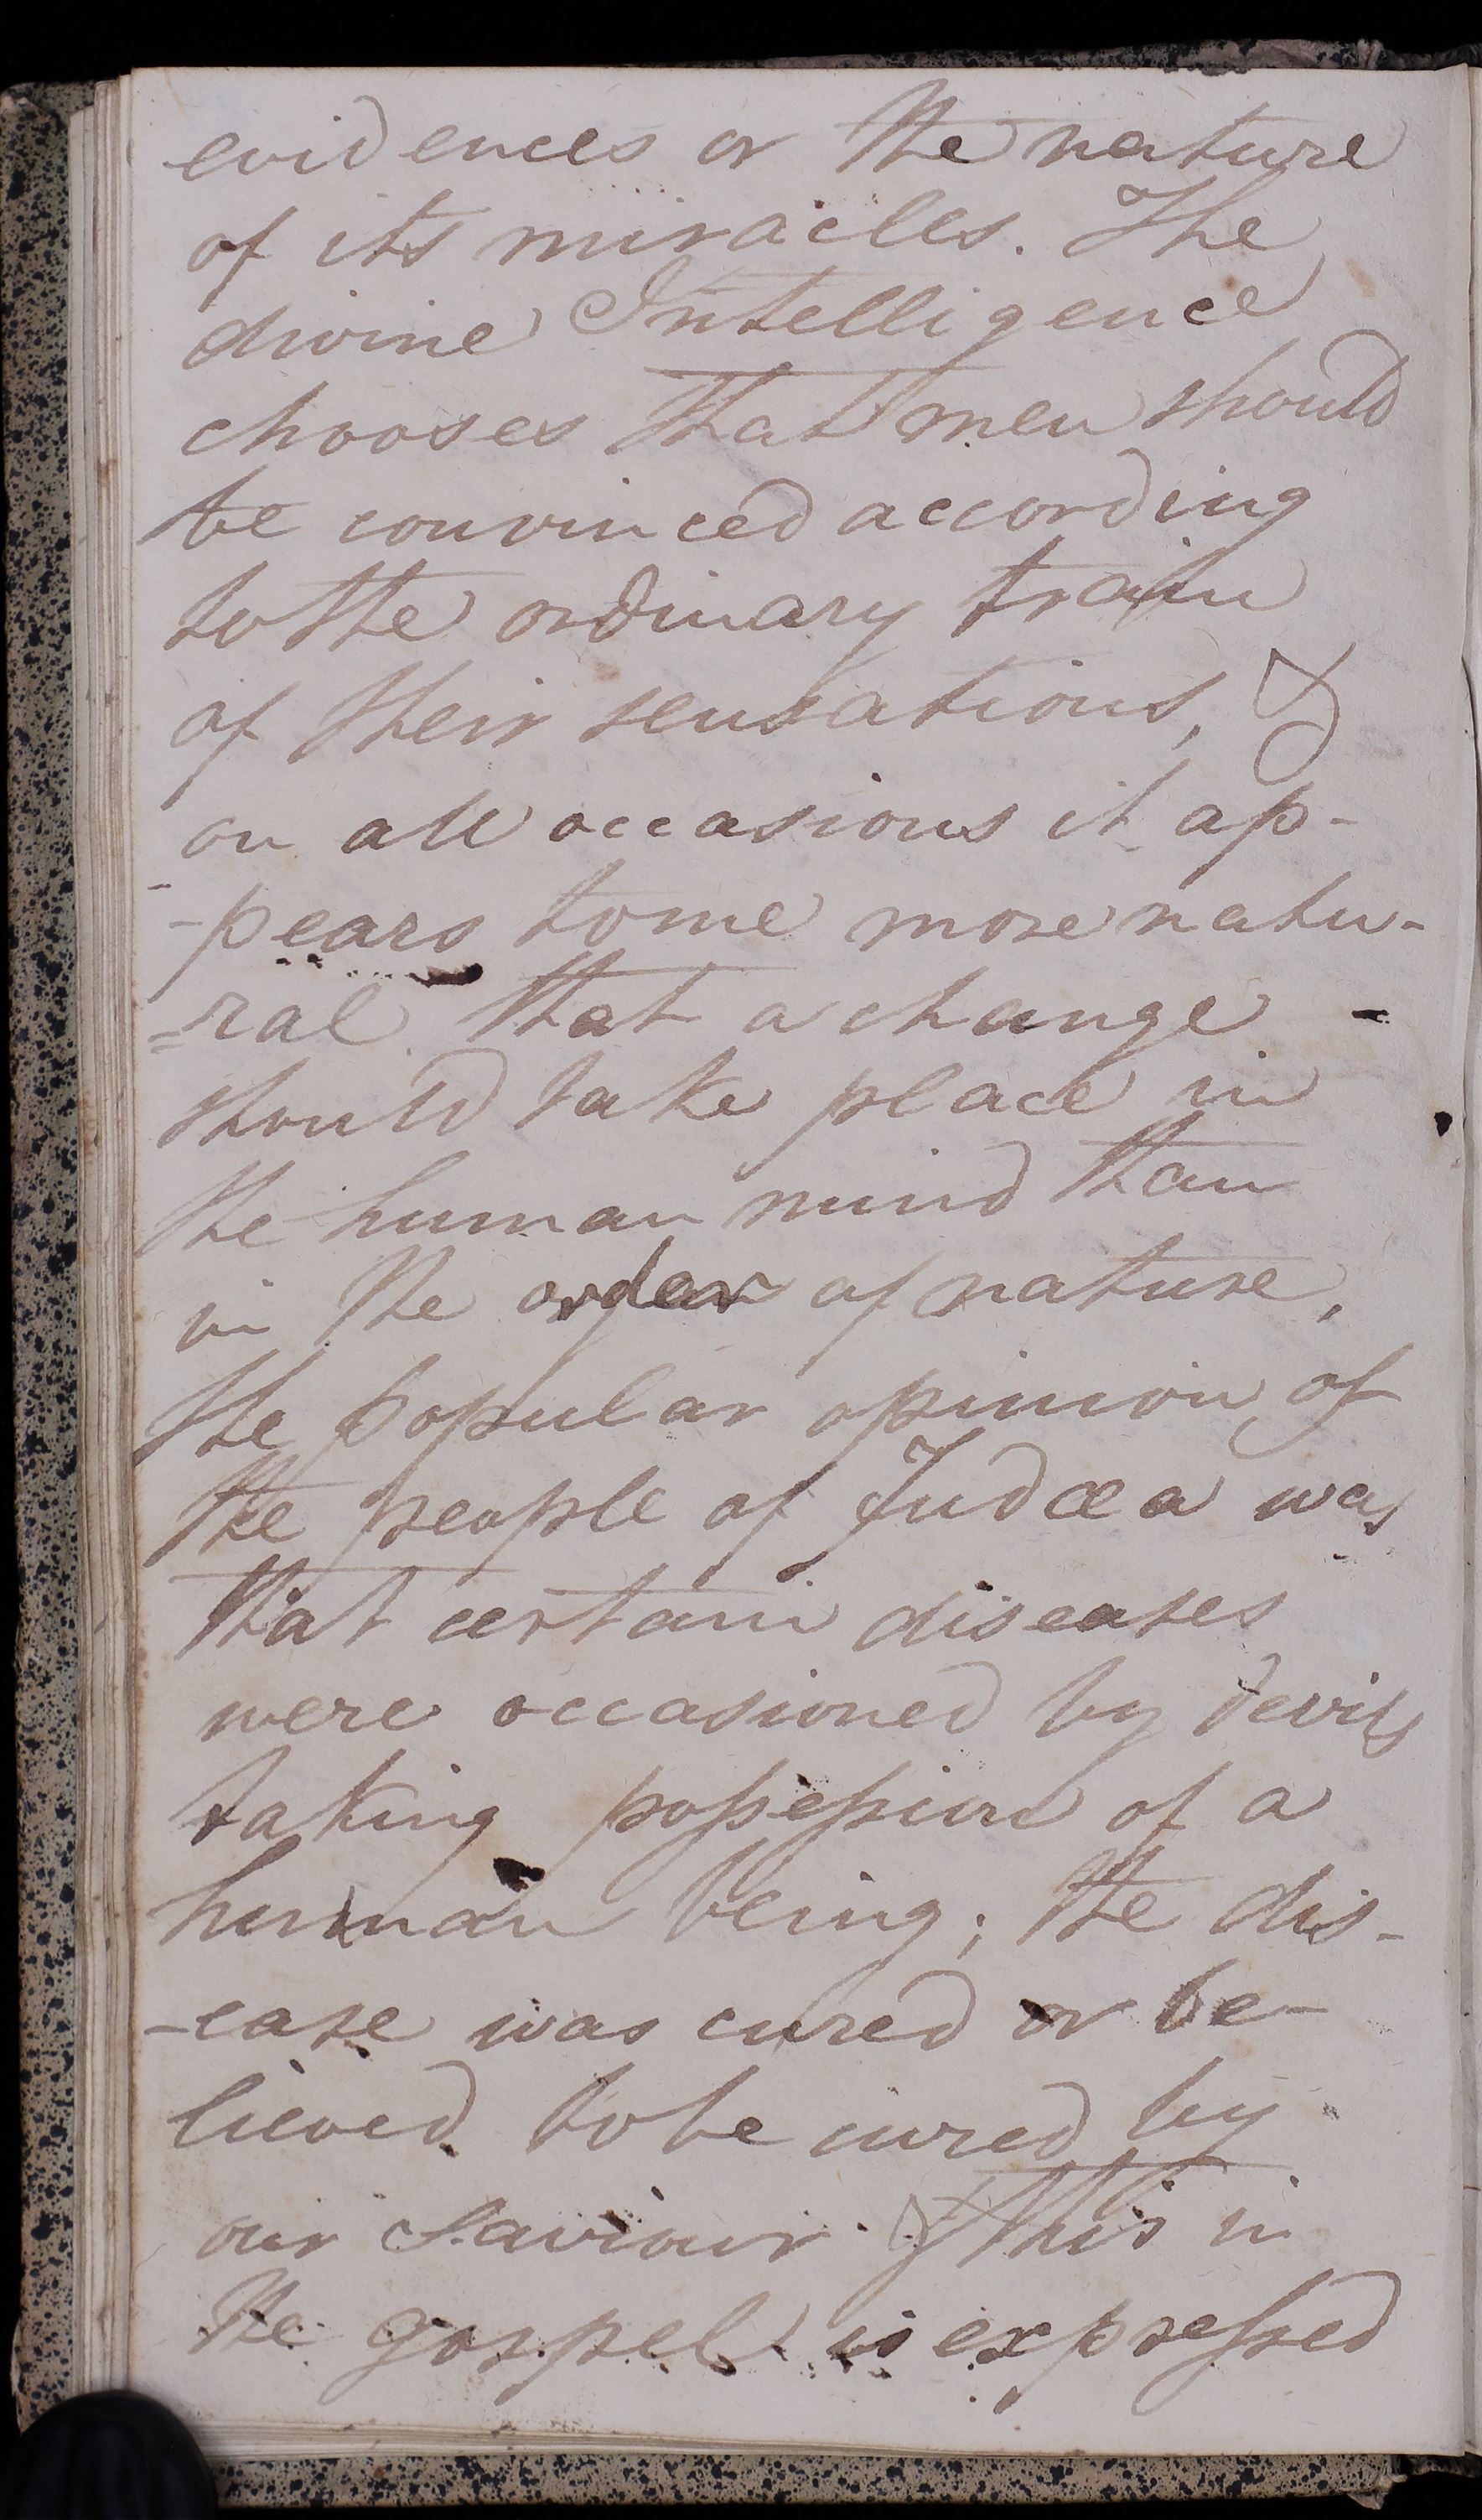 evidences or the nature
of its miracles. The
divine Intelligence
chooses that men should
be convinced according
to the ordinary train
of their sensations, &
on all occasions it ap-
-pears to me more natu-
-ral that a change -
should take place in
the human mind than
in the order of nature,
the popular opinion of
the people of Judæa was
that certain diseases
were occasioned by devils
taking possession of a
human being; the dis-
-ease was cured or be-
lieved to be cured by
our Saviour & this in
the gospel is expressed